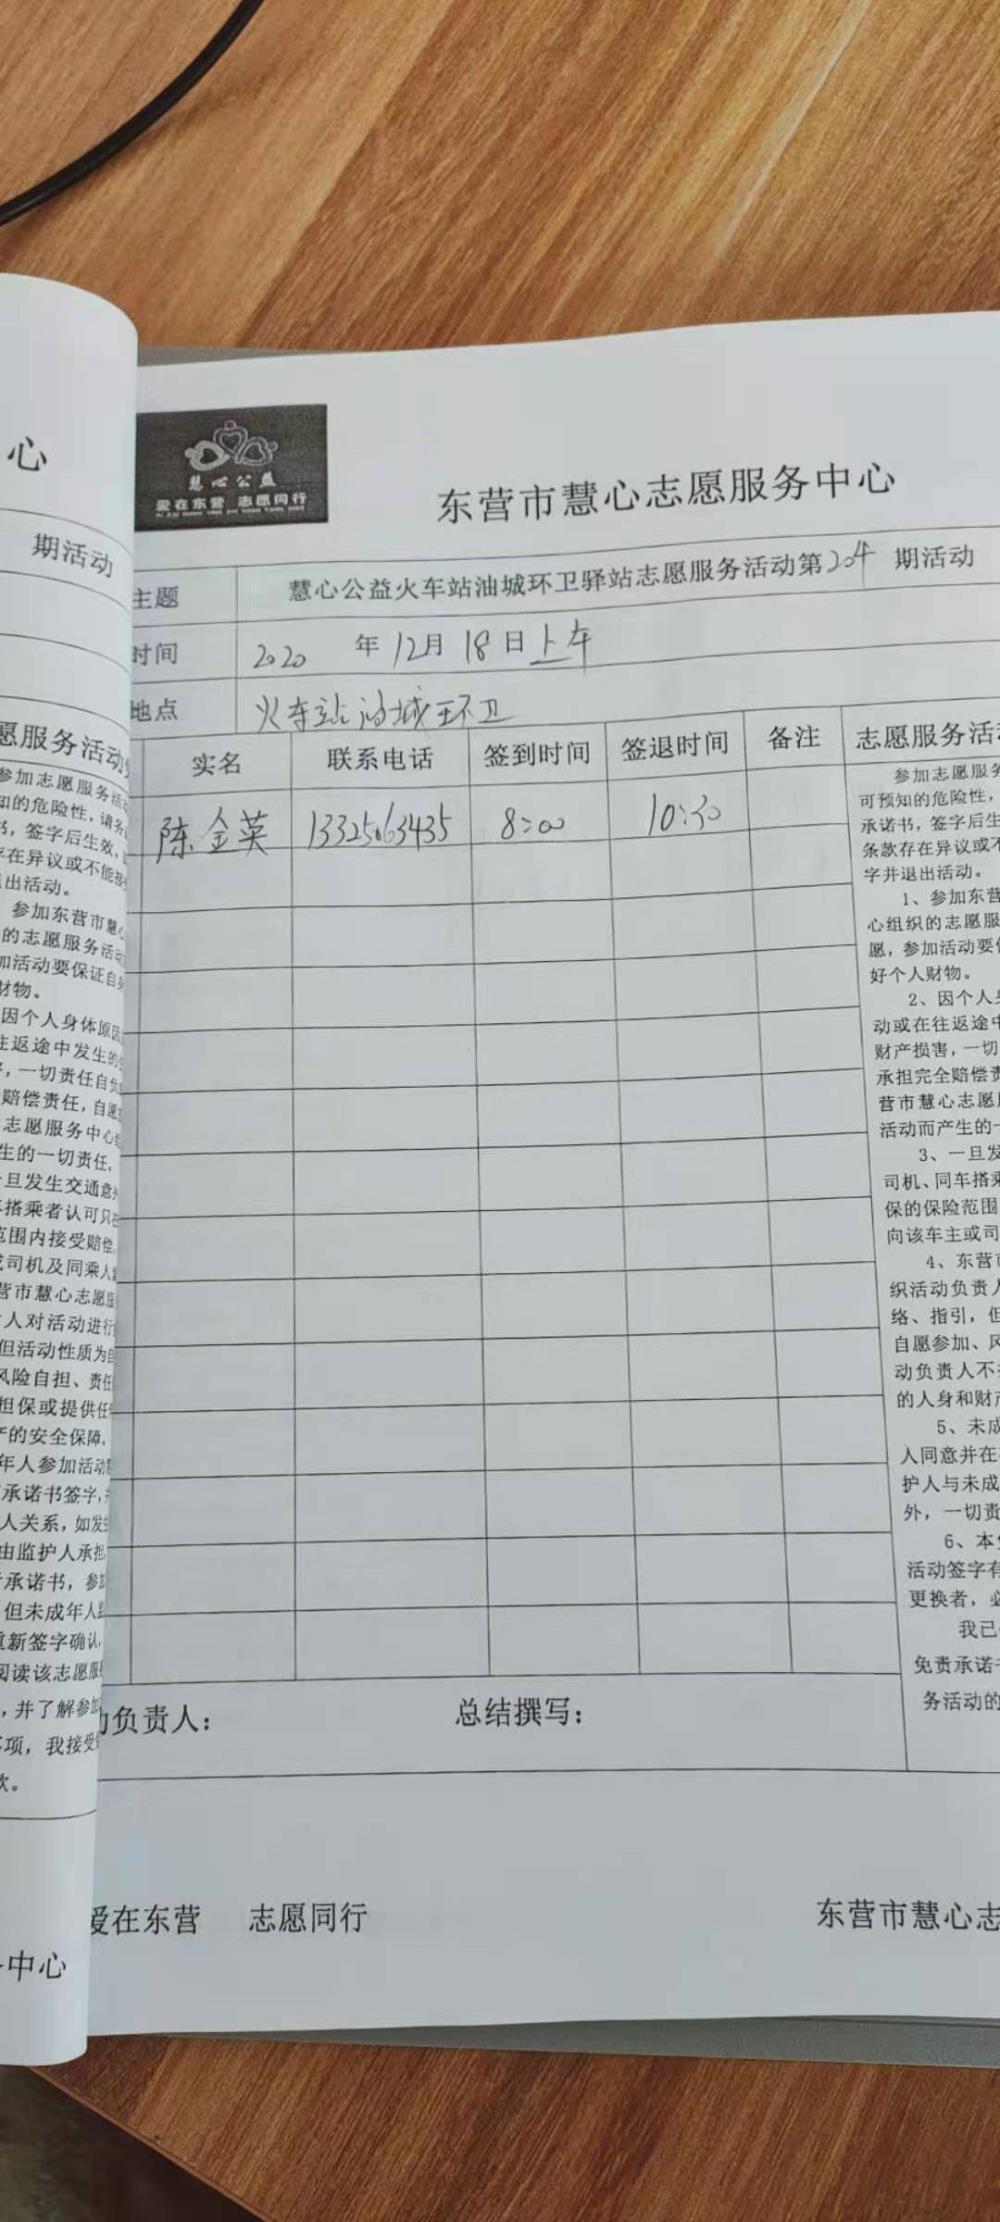 心
期活动
愿服务活动
参加志愿服务活动
知的危险性，请务
书，签字后生效，
存在异议或不能接
出活动。
参加东营市慧心
的志愿服务活动
加活动要保证自身
财物。
因个人身体原因
往返途中发生的
，一切责任自负
赔偿责任，自愿
志愿服务中心
生的一切责任。
一旦发生交通意外
搭乘者认可只在
范围内接受赔偿
或司机及同乘人
营市慧心志愿服
人对活动进行
但活动性质为自
风险自担、责任
担保或提供任
产的安全保障。
年人参加活动
承诺书签字，
人关系，如发生
由监护人承担
承诺书，参加
但未成年人监
重新签字确认
阅读该志愿服
，并了解参加
项，我接受
款。
中心
慧心公益
爱在东营 志愿同行
东营市慧心志愿服务中心
主题 慧心公益火车站油城环卫驿站志愿服务活动第204期活动
时间 2020 年 12月 18日上午
地点 火车站油城环卫
实名 联系电话 签到时间 签退时间 备注
陈金英 13325063435 8:00 10:30
负责人： 总结撰写：
志愿服务活动
参加志愿服务
可预知的危险性，
承诺书，签字后生
条款存在异议或不
字并退出活动。
1、参加东营
心组织的志愿服
愿，参加活动要保
好个人财物。
2、因个人身
动或在往返途中
财产损害，一切
承担完全赔偿责
营市慧心志愿服
活动而产生的一
3、一旦发
司机、同车搭乘
保的保险范围
向该车主或司
4、东营市
织活动负责人
络、指引，但
自愿参加、风
动负责人不
的人身和财产
5、未成
人同意并在
护人与未成
外，一切责
6、本
活动签字有
更换者，必
我已
免责承诺书
务活动的
爱在东营 志愿同行
东营市慧心志